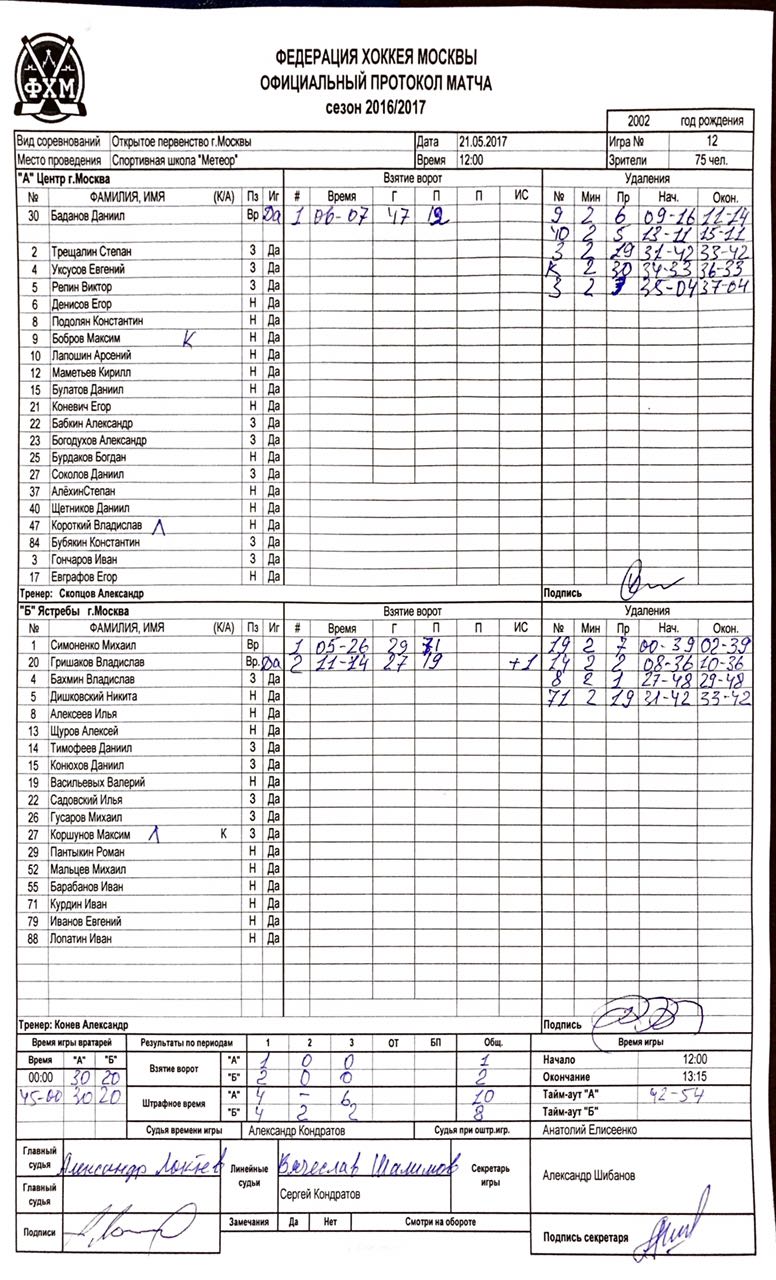 ФХМ
ФЕДЕРАЦИЯ ХОККЕЯ МОСКВЫ
ОФИЦИАЛЬНЫЙ ПРОТОКОЛ МАТЧА
сезон 2016/2017
2002 год рождения
Вид соревнований Открытое первенство г.Москвы Дата 21.05.2017 Игра № 12
Место проведения Спортивная школа "Метеор" Время 12:00 Зрители 75 чел.
"А" Центр г.Москва Взятие ворот Удаления
№ ФАМИЛИЯ, ИМЯ (К/А) Пз Иг # Время Г П П ИС № Мин Пр Нач. Окон.
30 Баданов Даниил Вр Да 1 06-07 47 12 9 2 6 09-16 11-14
40 2 5 13-11 15-11
2 Трещалин Степан З Да 3 2 19 31-42 33-42
4 Уксусов Евгений З Да К 2 30 34-33 36-33
5 Репин Виктор З Да 3 2 35-04 37-04
6 Денисов Егор Н Да
8 Подолян Константин Н Да
9 Бобров Максим К Н Да
10 Лапошин Арсений Н Да
12 Маметьев Кирилл Н Да
15 Булатов Даниил Н Да
21 Коневич Егор Н Да
22 Бабкин Александр З Да
23 Богодухов Александр З Да
25 Бурдаков Богдан Н Да
27 Соколов Даниил З Да
37 АлёхинСтепан Н Да
40 Щетников Даниил Н Да
47 Короткий Владислав А Н Да
84 Бубякин Константин З Да
3 Гончаров Иван З Да
17 Евграфов Егор Н Да
Тренер: Скопцов Александр Подпись
"Б" Ястребы г.Москва Взятие ворот Удаления
№ ФАМИЛИЯ, ИМЯ (К/А) Пз Иг # Время Г П П ИС № Мин Пр Нач. Окон.
1 Симоненко Михаил Вр 1 05-26 29 71 19 2 7 00-39 02-39
20 Гришаков Владислав Вр. Да 2 11-14 27 19 +1 14 2 2 08-36 10-36
4 Бахмин Владислав З Да 8 2 1 27-48 29-48
5 Дишковский Никита Н Да 71 2 19 31-42 33-42
8 Алексеев Илья Н Да
13 Щуров Алексей Н Да
14 Тимофеев Даниил З Да
15 Конюхов Даниил З Да
19 Васильевых Валерий Н Да
22 Садовский Илья З Да
26 Гусаров Михаил З Да
27 Коршунов Максим А К З Да
29 Пантыкин Роман Н Да
52 Мальцев Михаил Н Да
55 Барабанов Иван Н Да
71 Курдин Иван Н Да
79 Иванов Евгений Н Да
88 Лопатин Иван Н Да
Тренер: Конев Александр Подпись
Время игры вратарей Результаты по периодам 1 2 3 ОТ БП Общ. Время игры
Время "А" "Б" Взятие ворот "А" 1 0 0 1 Начало 12:00
00:00 30 20 "Б" 2 0 0 2 Окончание 13:15
45-00 30 20 Штрафное время "А" 4 - 6 10 Тайм-аут "А" 42-54
"Б" 4 2 2 8 Тайм-аут "Б"
Судья времени игры Александр Кондратов Судья при оштр.игр. Анатолий Елисеенко
Главный судья Александр Локтев Линейные судьи Вячеслав Шалимов Секретарь игры Александр Шибанов
Главный судья Сергей Кондратов
Подписи Замечания Да Нет Смотри на обороте Подпись секретаря